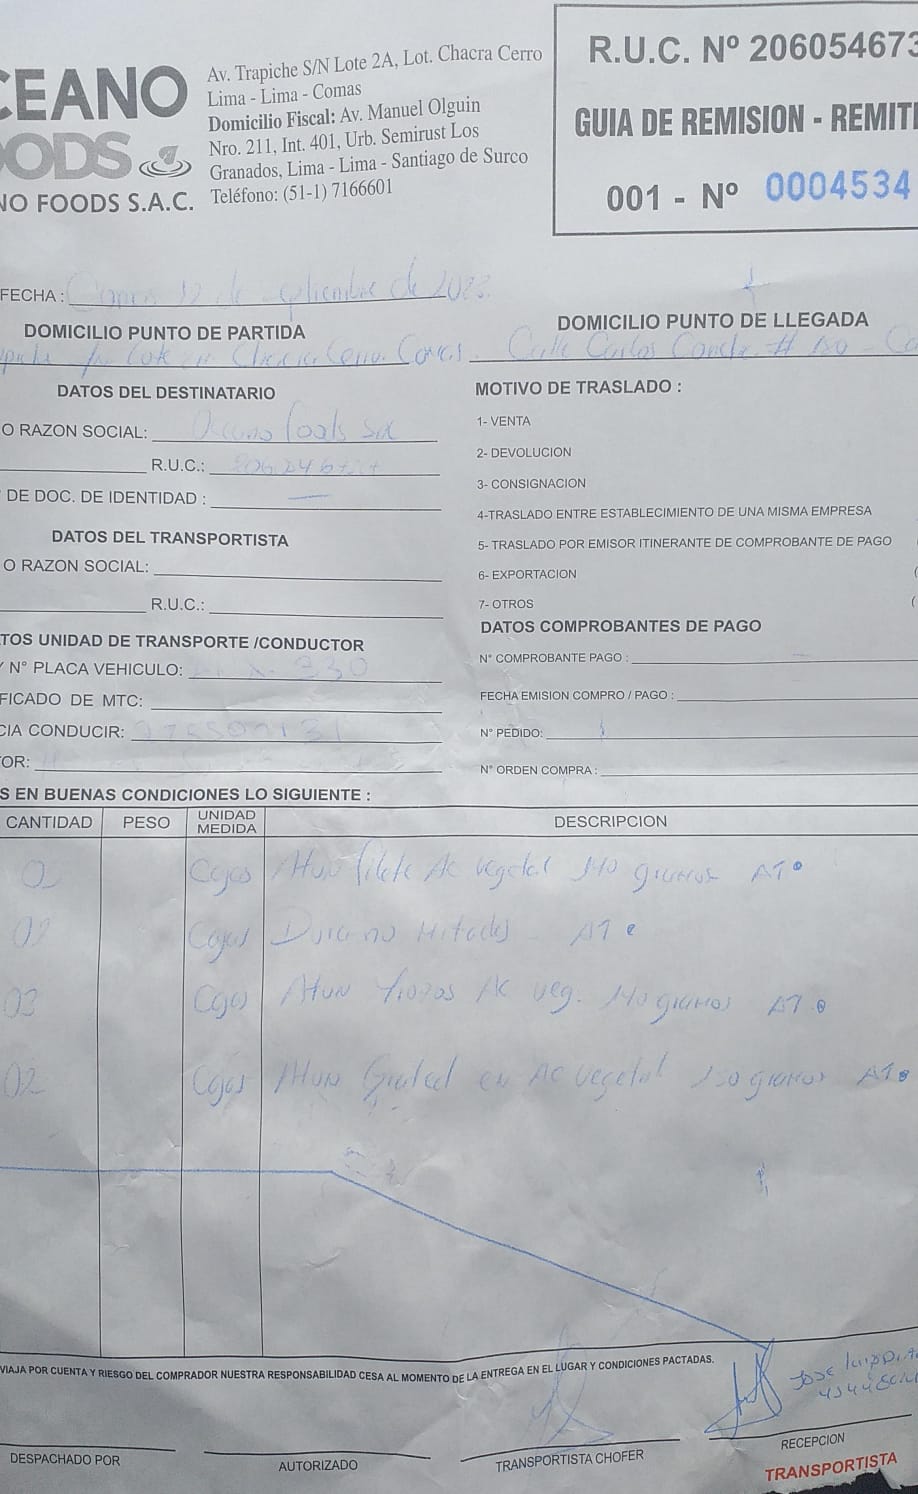 CEANO
OODS
NO FOODS S.A.C.
Av. Trapiche S/N Lote 2A, Lot. Chacra Cerro
Lima - Lima - Comas
Domicilio Fiscal: Av. Manuel Olguin
Nro. 211, Int. 401, Urb. Semirust Los
Granados, Lima - Lima - Santiago de Surco
Teléfono: (51-1) 7166601
R.U.C. Nº 206054673
GUIA DE REMISION - REMITE
001 - Nº 0004534
FECHA : Comas 12 de septiembre de 2022
DOMICILIO PUNTO DE PARTIDA
Chacra Cerro. Comas.
DOMICILIO PUNTO DE LLEGADA
Calle Carlos Concha #
DATOS DEL DESTINATARIO
O RAZON SOCIAL: Oceano Foods Sac
R.U.C.:
DE DOC. DE IDENTIDAD : —
DATOS DEL TRANSPORTISTA
O RAZON SOCIAL:
R.U.C.:
TOS UNIDAD DE TRANSPORTE /CONDUCTOR
Y N° PLACA VEHICULO: 330
FICADO DE MTC:
CIA CONDUCIR:
OR:
MOTIVO DE TRASLADO :
1- VENTA
2- DEVOLUCION
3- CONSIGNACION
4-TRASLADO ENTRE ESTABLECIMIENTO DE UNA MISMA EMPRESA
5- TRASLADO POR EMISOR ITINERANTE DE COMPROBANTE DE PAGO
6- EXPORTACION (
7- OTROS (
DATOS COMPROBANTES DE PAGO
N° COMPROBANTE PAGO :
FECHA EMISION COMPRO / PAGO :
N° PEDIDO:
N° ORDEN COMPRA :
S EN BUENAS CONDICIONES LO SIGUIENTE :
CANTIDAD PESO UNIDAD MEDIDA DESCRIPCION
Cajas Atun filete Ac vegetal 140 gramos A1
02 Cajas Durazno Mitades - A1
03 Cajas Atun Trozos Ac veg. 140 gramos A1
02 Cajas Atun Grated en Ac vegetal 150 gramos A1
VIAJA POR CUENTA Y RIESGO DEL COMPRADOR NUESTRA RESPONSABILIDAD CESA AL MOMENTO DE LA ENTREGA EN EL LUGAR Y CONDICIONES PACTADAS.
JOSE
DESPACHADO POR
AUTORIZADO
TRANSPORTISTA CHOFER
RECEPCION
TRANSPORTISTA